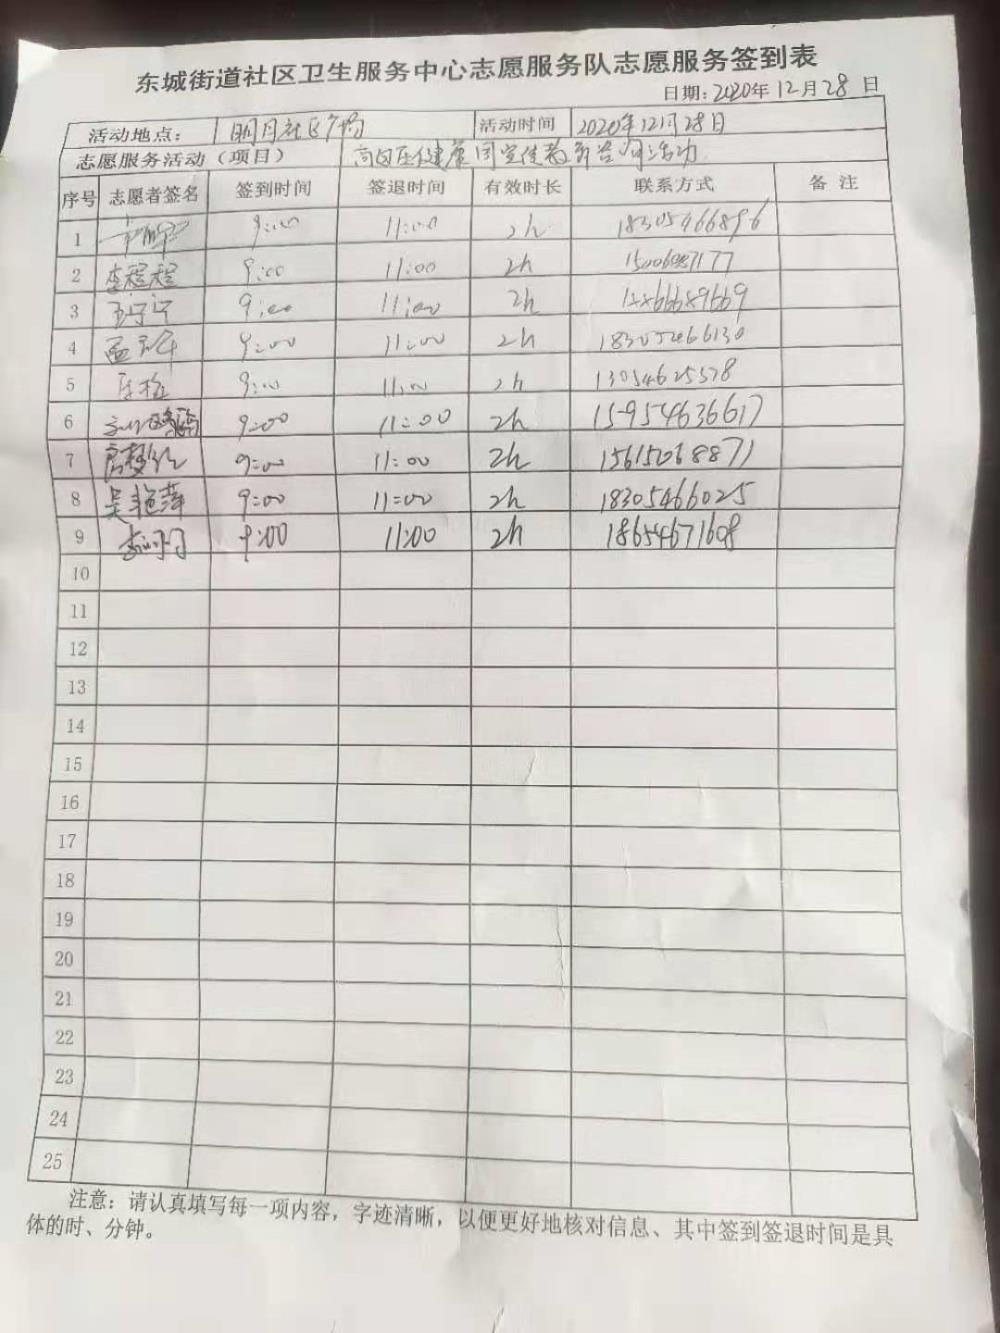 东城街道社区卫生服务中心志愿服务队志愿服务签到表
日期:2020年12月28日
活动地点: 明月社区广场 活动时间 2020年12月28日
志愿服务活动（项目） 高血压健康 宣传教 咨询活动
序号 志愿者签名 签到时间 签退时间 有效时长 联系方式 备 注
1 9:00 11:00 2h 18305466896
2 李程程 9:00 11:00 2h
3 9:00 11:00 2h
4 9:00 11:00 2h
5 9:00 11:00 2h 13054625578
6 9:00 11:00 2h 15954636617
7 9:00 11:00 2h 15615068871
8 吴艳萍 9:00 11:00 2h 18305466025
9 9:00 11:00 2h 18654671608
10
11
12
13
14
15
16
17
18
19
20
21
22
23
24
25
注意：请认真填写每一项内容，字迹清晰，以便更好地核对信息、其中签到签退时间是具
体的时、分钟。